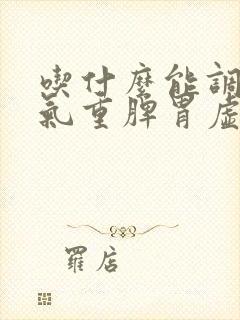 喫什麼能調
氣重脾胃虛
羅店